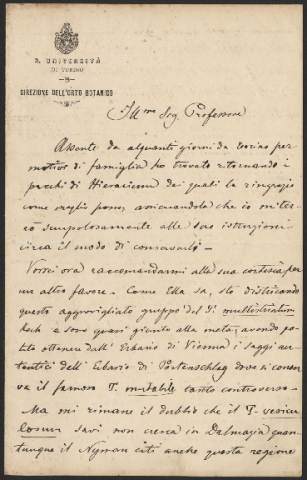 R. UNIVERSITÀ
DI TORINO
DIREZIONE DELL'ORTO BOTANICO
Ill.mo Sig. Professore
Assente da alquanti giorni da Torino per
motivi di famiglia ho trovato ritornando i
pacchi di Hieracium dei quali la ringrazio
come meglio posso, assicurandola che io mette-
rò scrupolosamente alle sue istruzioni
circa il modo di conservarli —
Vorrei ora raccomandarmi alla sua cortesia per
un altro favore. — Come Ella sa, sto districando
questo aggrovigliato gruppo del T. multistriatum
Koch e sono quasi giunto alla meta, avendo po-
tuto ottenere dall' Erbario di Vienna i saggi au-
tentici dell' Erbario di Portenschlag dove si conser-
va il famoso T. mutabile tanto controverso —
Ma mi rimane il dubbio che il T. vesicu-
losum Savi non cresca in Dalmazia quan-
tunque il Nyman citi anche questa regione